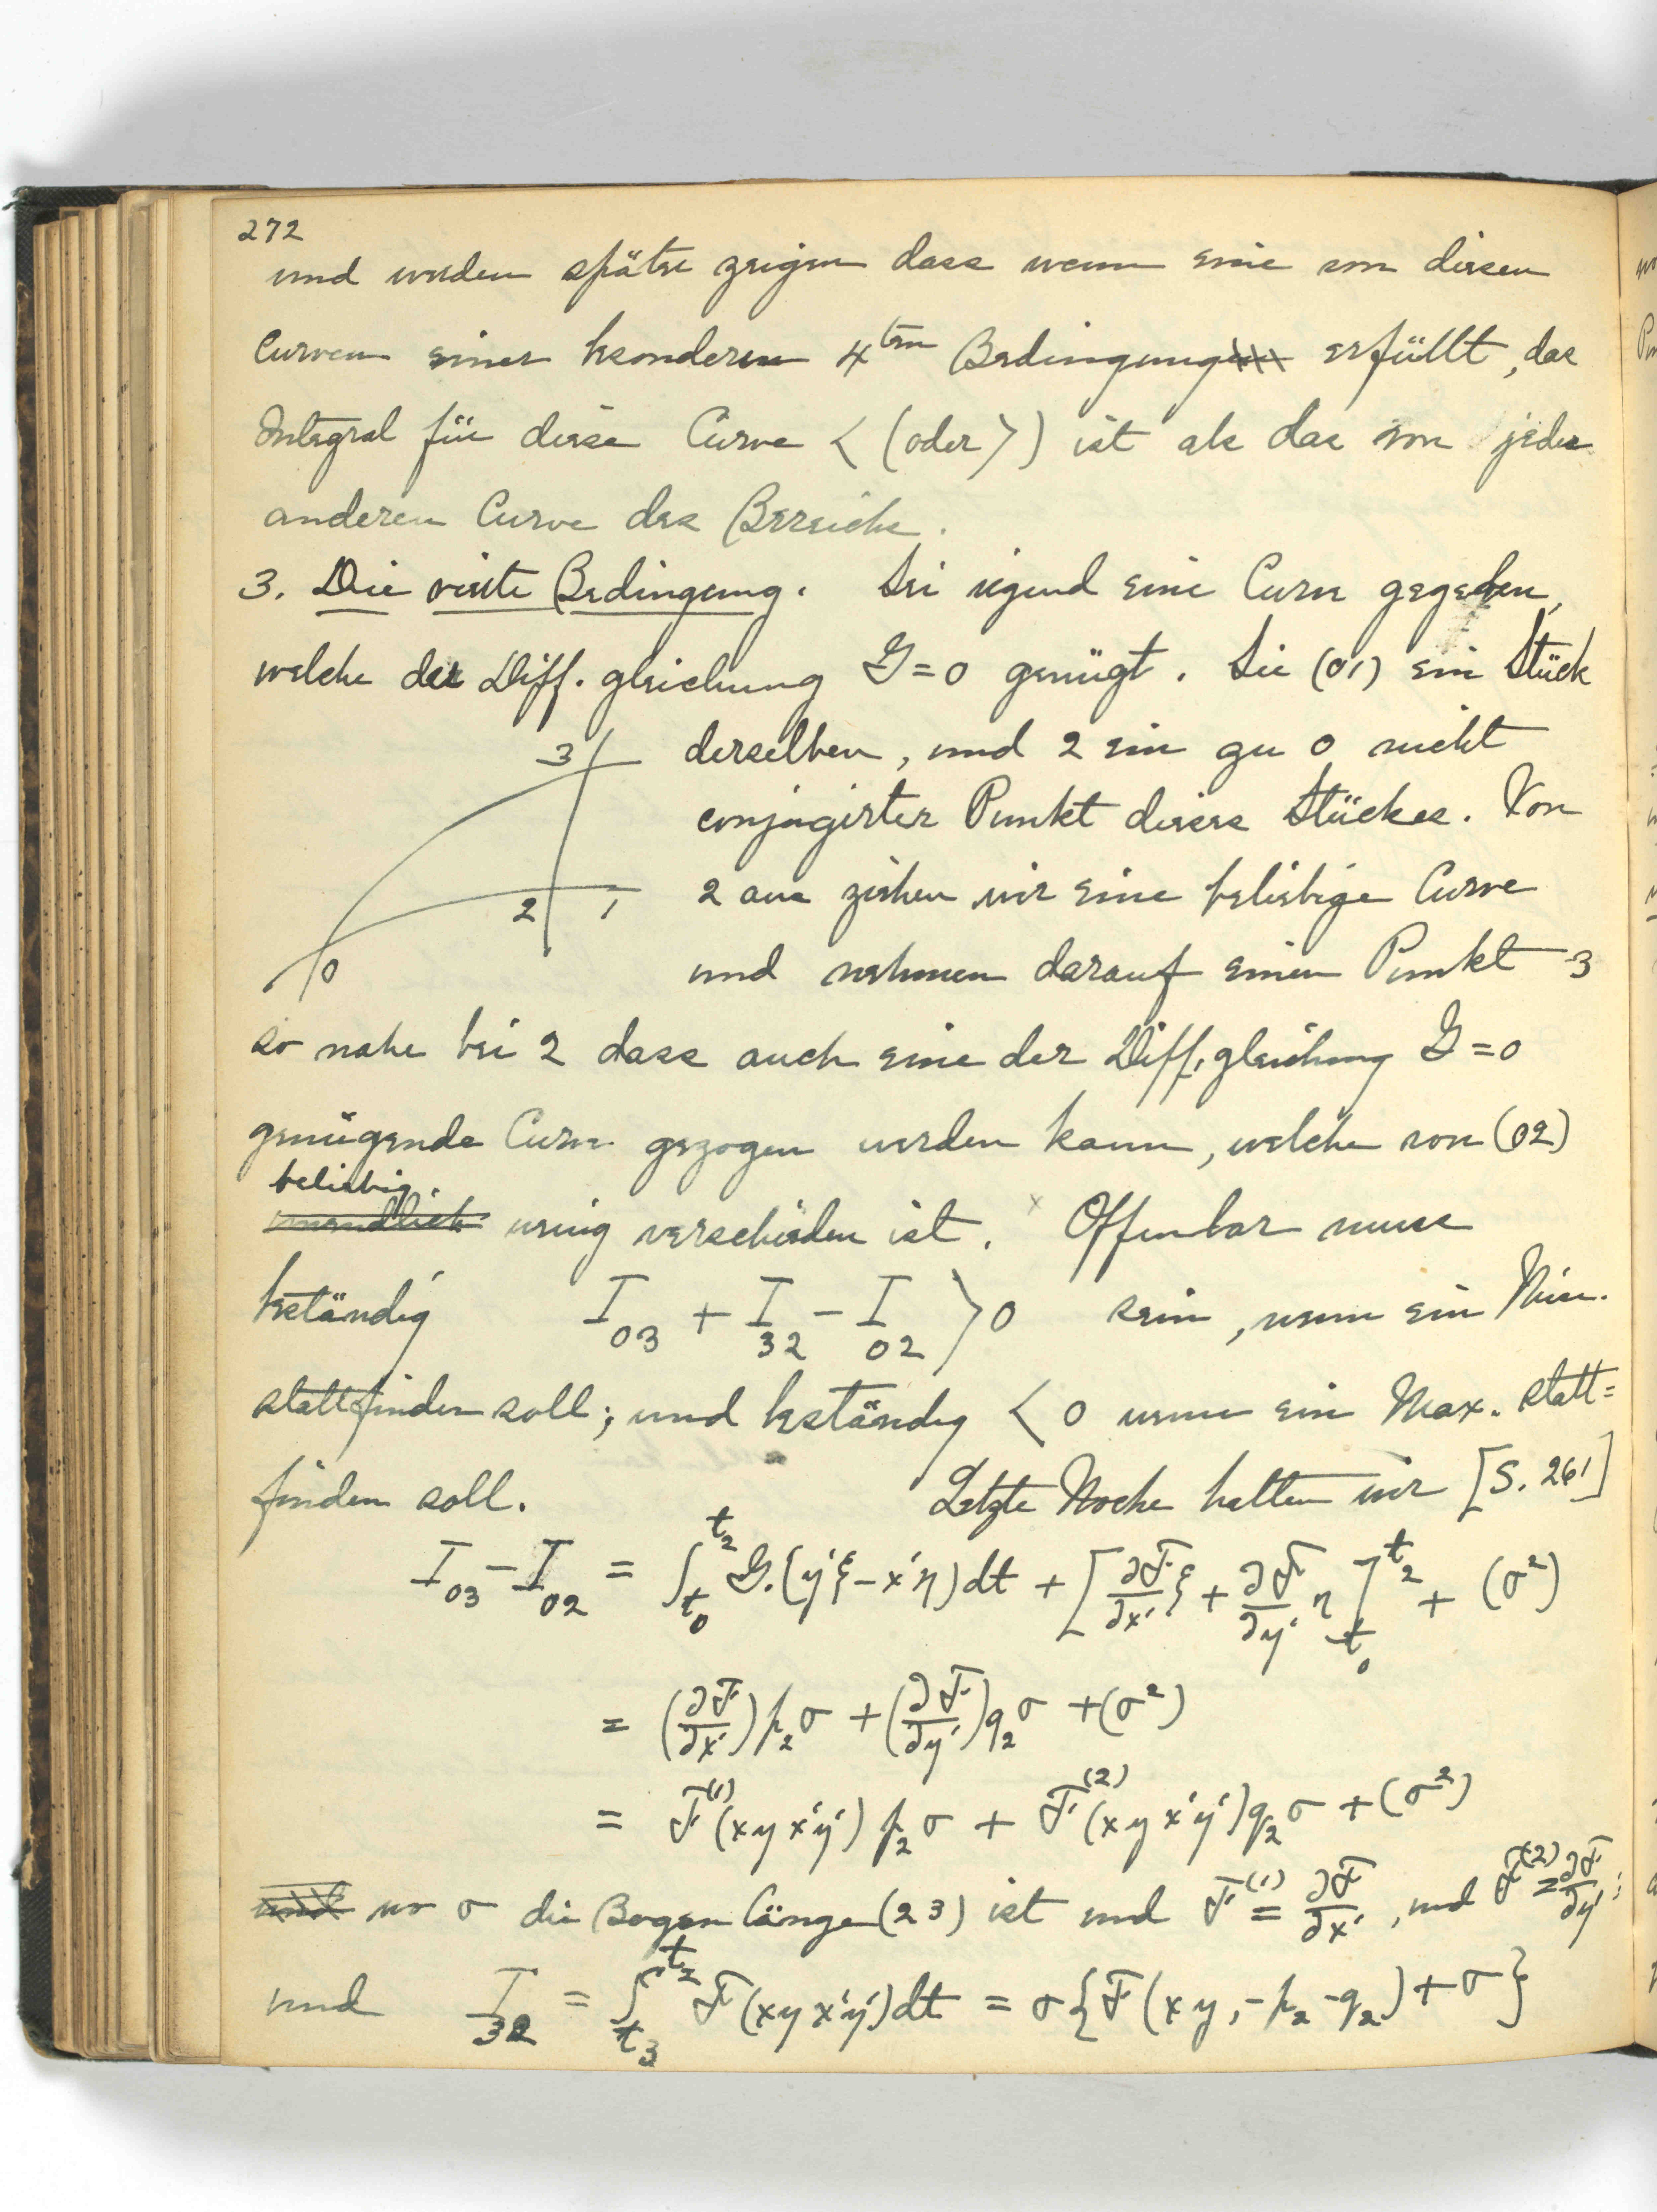 272
und werden später zeigen dass wenn eine von diesen
Curven einer besonderen 4ten Bedingung erfüllt, das
Integral für diese Curve < (oder >) ist als das von jeder
anderen Curve des Bereichs.
3. Die vierte Bedingung. Sei irgend eine Curve gegeben,
welche der Diff. gleichung G=0 genügt. Sei (01) ein Stück
derselben, und 2 ein zu 0 nicht
conjugirter Punkt dieses Stückes. Von
2 aus ziehen wir eine beliebige Curve
und nehmen darauf einen Punkt 3
3
2 1
0
so nahe bei 2 dass auch eine der Diff. gleichung G=0
genügende Curve gezogen werden kann, welche von (02)
beliebig
unendlich wenig verschieden ist. Offenbar muss
beständig I₀₃ + I₃₂ − I₀₂ > 0 sein, wenn ein Min.
stattfinden soll; und beständig < 0 wenn ein Max. statt=
finden soll. Letzte Woche hatten wir [S. 261]
I₀₃ − I₀₂ = ∫_{t₀}^{t₂} G.(y'ξ − x'η)dt + [∂F/∂x' ξ + ∂F/∂y' η]_{t₀}^{t₂} + (σ²)
= (∂F/∂x') p₂σ + (∂F/∂y') q₂σ + (σ²)
= F⁽¹⁾(xy x'y') p₂σ + F⁽²⁾(xy x'y') q₂σ + (σ²)
und wo σ die Bogen Länge (23) ist und F⁽¹⁾ = ∂F/∂x', und F⁽²⁾ = ∂F/∂y';
und I₃₂ = ∫_{t₃}^{t₂} F(xy x'y')dt = σ{F(xy, −p₂ −q₂) + σ}